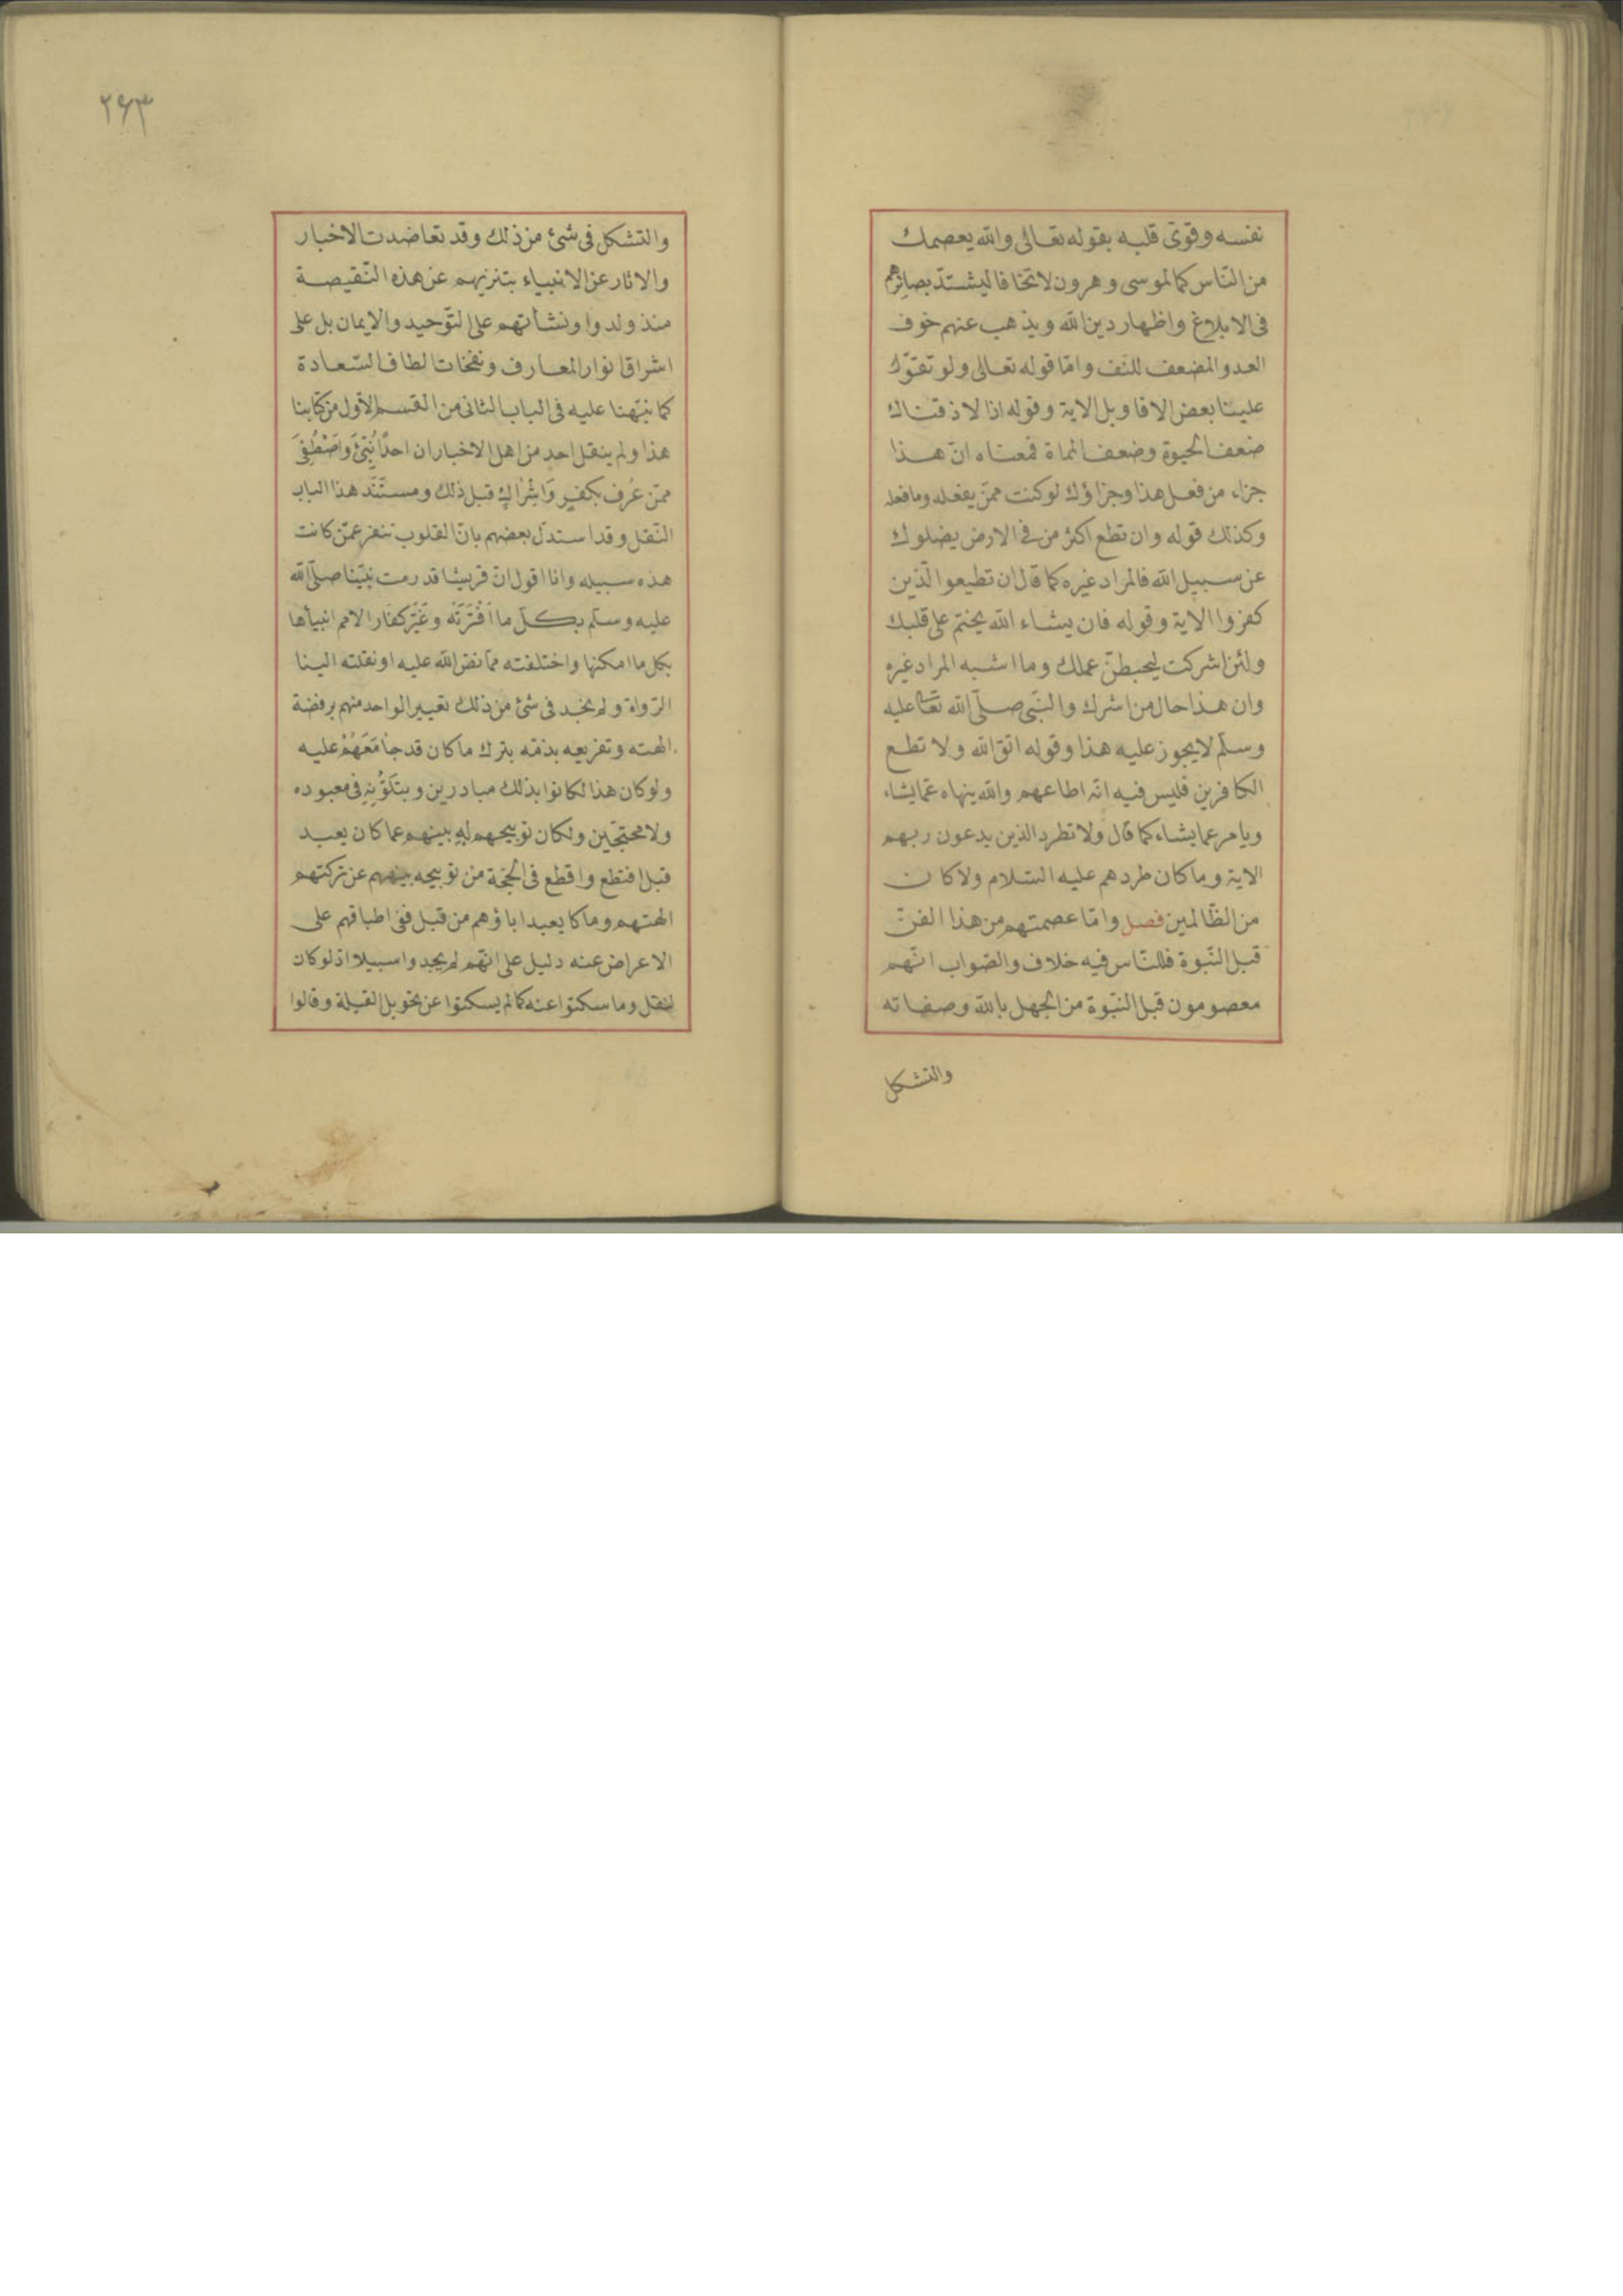 نفسه وقوّى قلبه بقوله تعالى والله يعصمك
من النّاس كما لموسى وهرون لا تخافا ليشتدّ بصائرهم
فى الابلاغ واظهار دين الله ويذهب عنهم خوف
العدو المضعف للنف وامّا قوله تعالى ولو تقوّل
علينا بعض الاقاويل الاية وقوله اذا لاذقناك
ضعف الحيوة وضعف المماة فمعناه انّ هذا
جزاء من فعل هذا وجزاؤك لو كنت ممنّ يفعله وما فعله
وكذلك قوله وان تطع اكثر من فى الارض يضلوك
عن سبيل الله فالمراد غيره كما قال ان تطيعوا الّذين
كفروا الاية وقوله فان يشاء الله يختم على قلبك
ولئن اشركت ليحبطنّ عملك وما اشبه المراد غيره
وان هذا حال من اشرك والنبّى صلّى الله تعا عليه
وسلّم لا يجوز عليه هذا وقوله اتق الله ولا تطع
الكافرين فليس فيه انّه اطاعهم والله ينهاه عمّا يشاء
ويامر عما يشاء كما قال ولا تطرد الذين يدعون ربهم
الاية وما كان طردهم عليه السّلام ولا كان
من الظّالمين فصل وامّا عصمتهم من هذا الفنّ
قبل النّبوة فللنّاس فيه خلاف والصّواب انّهم
معصومون قبل النبّوة من الجهل بالله وصفاته
والتشكل
٢٤٣
والتشكل فى شئ من ذلك وقد تعاضدت الاخبار
والاثار عن الانبياء بتنزيهم عن هذه النّقيصة
منذ ولدوا ونشأتهم على التّوحيد والايمان بل على
اشراق انوار المعارف ونفخات الطاف السّعادة
كما نبّهنا عليه فى الباب الثانى من القسم الأول من كتابنا
هذا ولم ينقل احد من اهل الاخبار ان احدًا نُبِّئَ وَاصْطُفِىَ
ممّن عُرِف بكفرٍ وَاِشْرَاكٍ قبل ذلك ومستَنَد هذا الباب
النّقل وقد استدلّ بعضهم بانّ القلوب تنفر عمّن كانت
هذه سبيله وانا اقول انّ قريشا قد رمت نبيّنا صلّى الله
عليه وسلّم بكلّ ما اَفْتَرَتْه وعَيَّر كفّار الامم انبيأها
بكل ما امكنها واختلفته ممّا نصّ الله عليه او نقلته الينا
الرّواة ولم نجد فى شئ من ذلك تعيير الواحد منهم برفضة
الهته وتقريعه بذمّه بترك ما كان قد جاَمَعَهُمْ عليه
ولو كان هذا لكانوا بذلك مبادرين وبتَلَوُّنِهِ فى معبوده
ولا محتجّين ولكان توبيخهم له بينهم عما كان يعبد
قبل افتطع واقطع فى الحجّة من توبيخه بينهم عن تركتهم
الهتهم وما كا يعبد اباؤهم من قبل ففى اطباقهم على
الاعراض عنه دليل على انّهم لم يجدوا سبيلا اذ لو كان
لنقل وما سكتوا عنه كما لم يسكتوا عن تحويل القبلة وقالوا